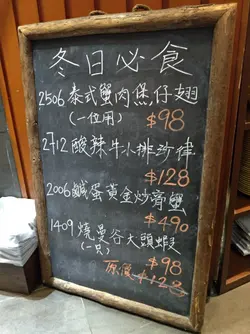 冬日必食
2506 泰式蟹肉煲仔翅
(一位用) $98
2712 酸辣牛小排沙律
$128
2006 鹹蛋黃金炒膏蟹
$490
1409 燒曼谷大頭蝦
(一只) $98
原價 $128